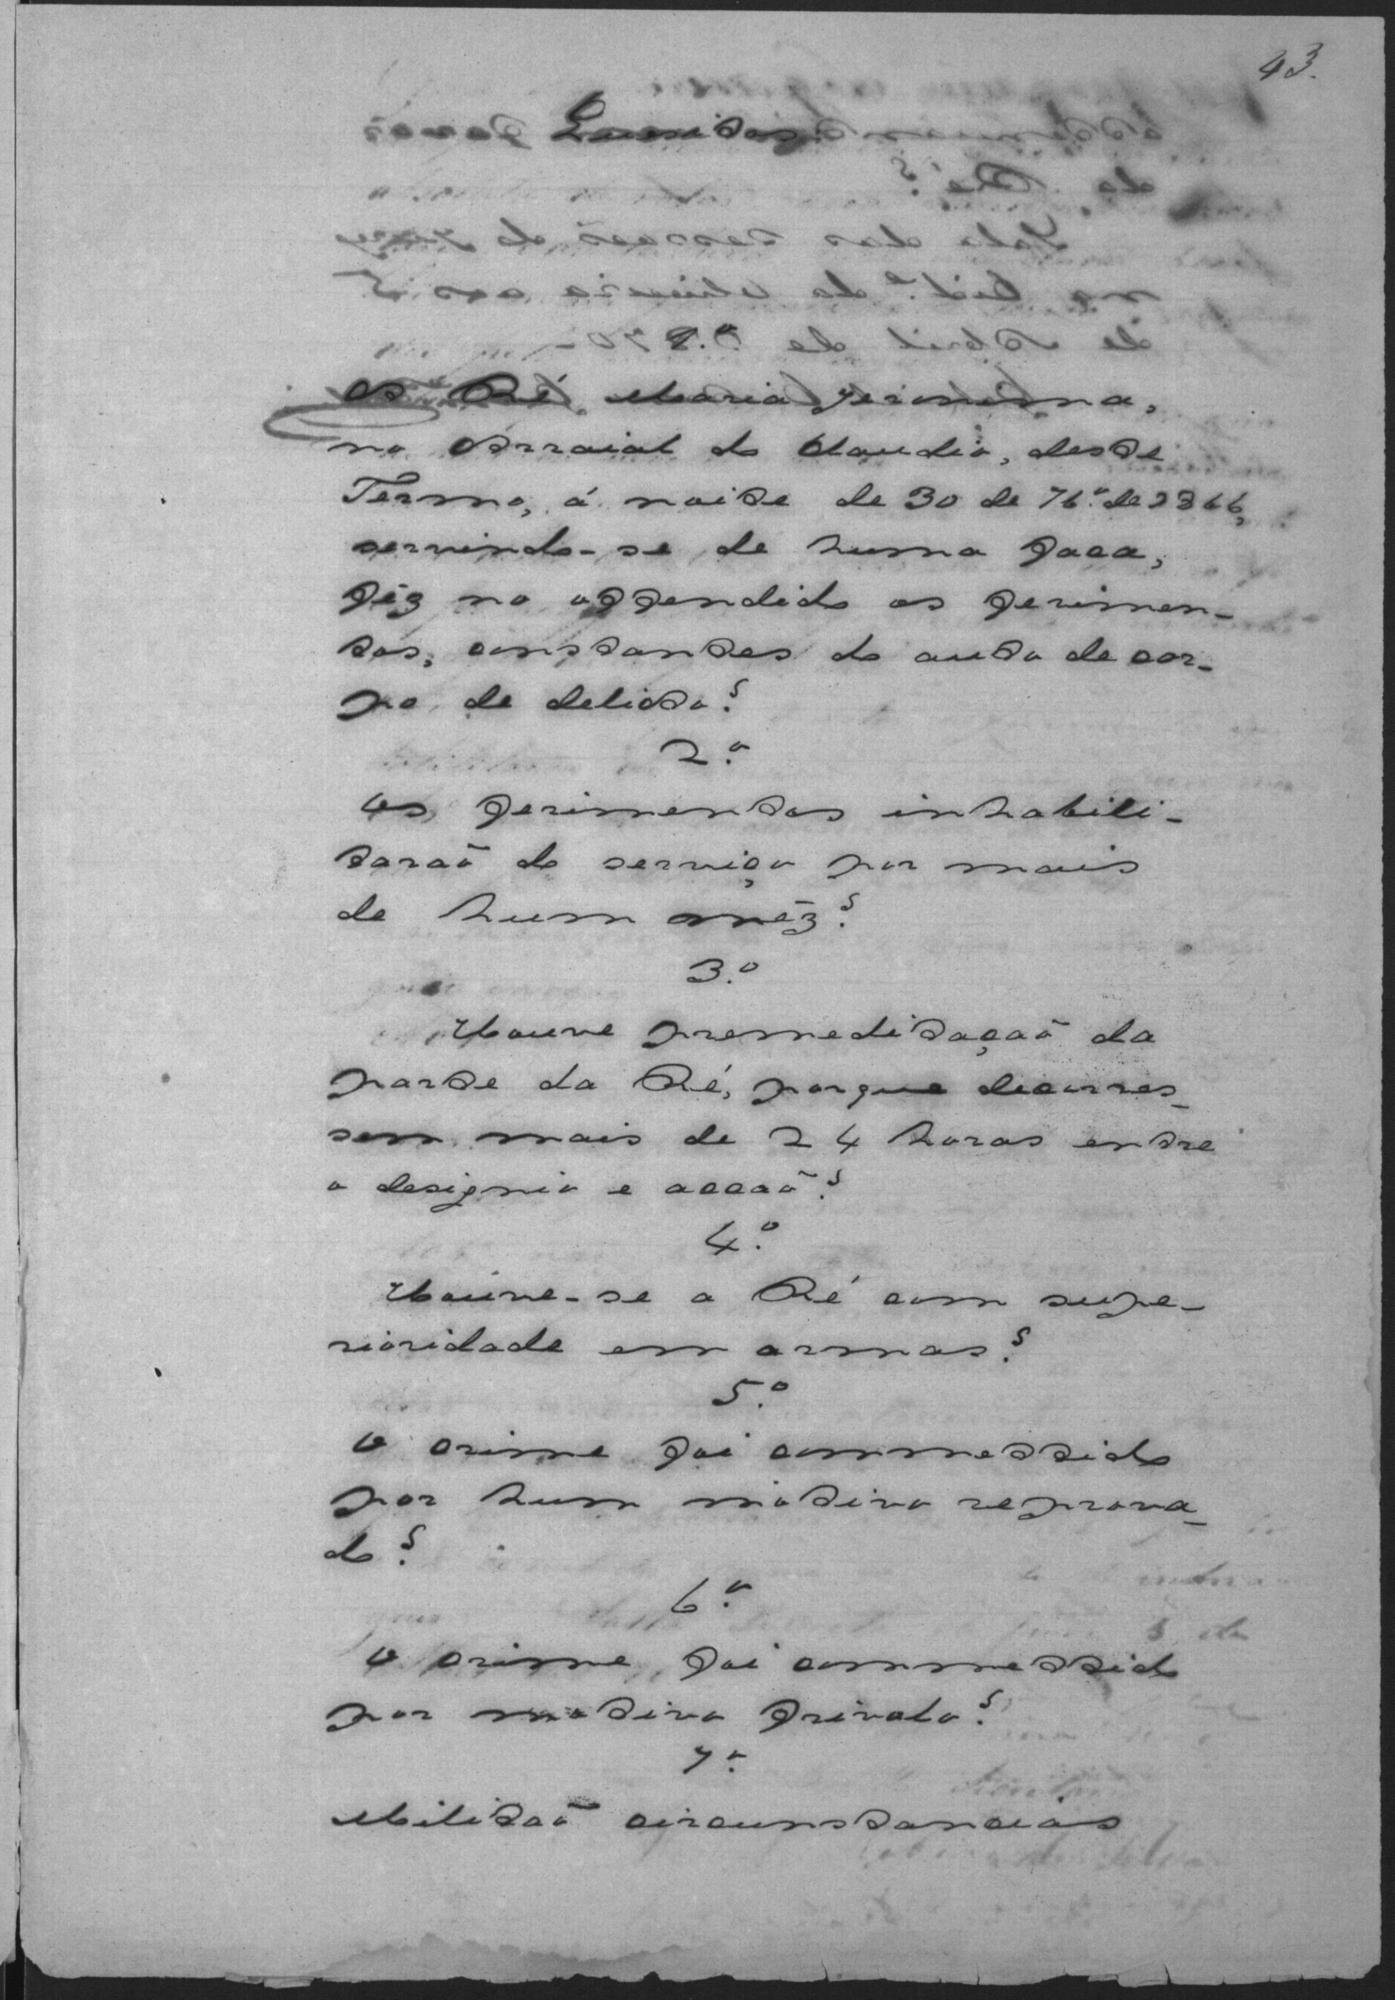 43.
Quesitos
A Ré Maria Jeronima,
no Arraial do Claudio, deste
Termo, á noite de 30 de 7b.º de 1866,
servindo-se de huma faca,
fêz no offendido os ferimen-
tos, constantes do auto de cor-
po de delicto?
2.º
Os ferimentos inhabili-
taraõ do serviço por mais
de hum mêz?
3.º
Houve premeditaçaõ da
parte da Ré, porque decorres-
sem mais de 24 horas entre
o designio e acçaõ?
4.º
Houve-se a Ré com supe-
rioridade em armas?
5.º
O crime foi commettido
por hum motivo reprova-
do?
6.º
O crime foi commettido
por motivo frivolo?
7.º
Militaõ circunstancias